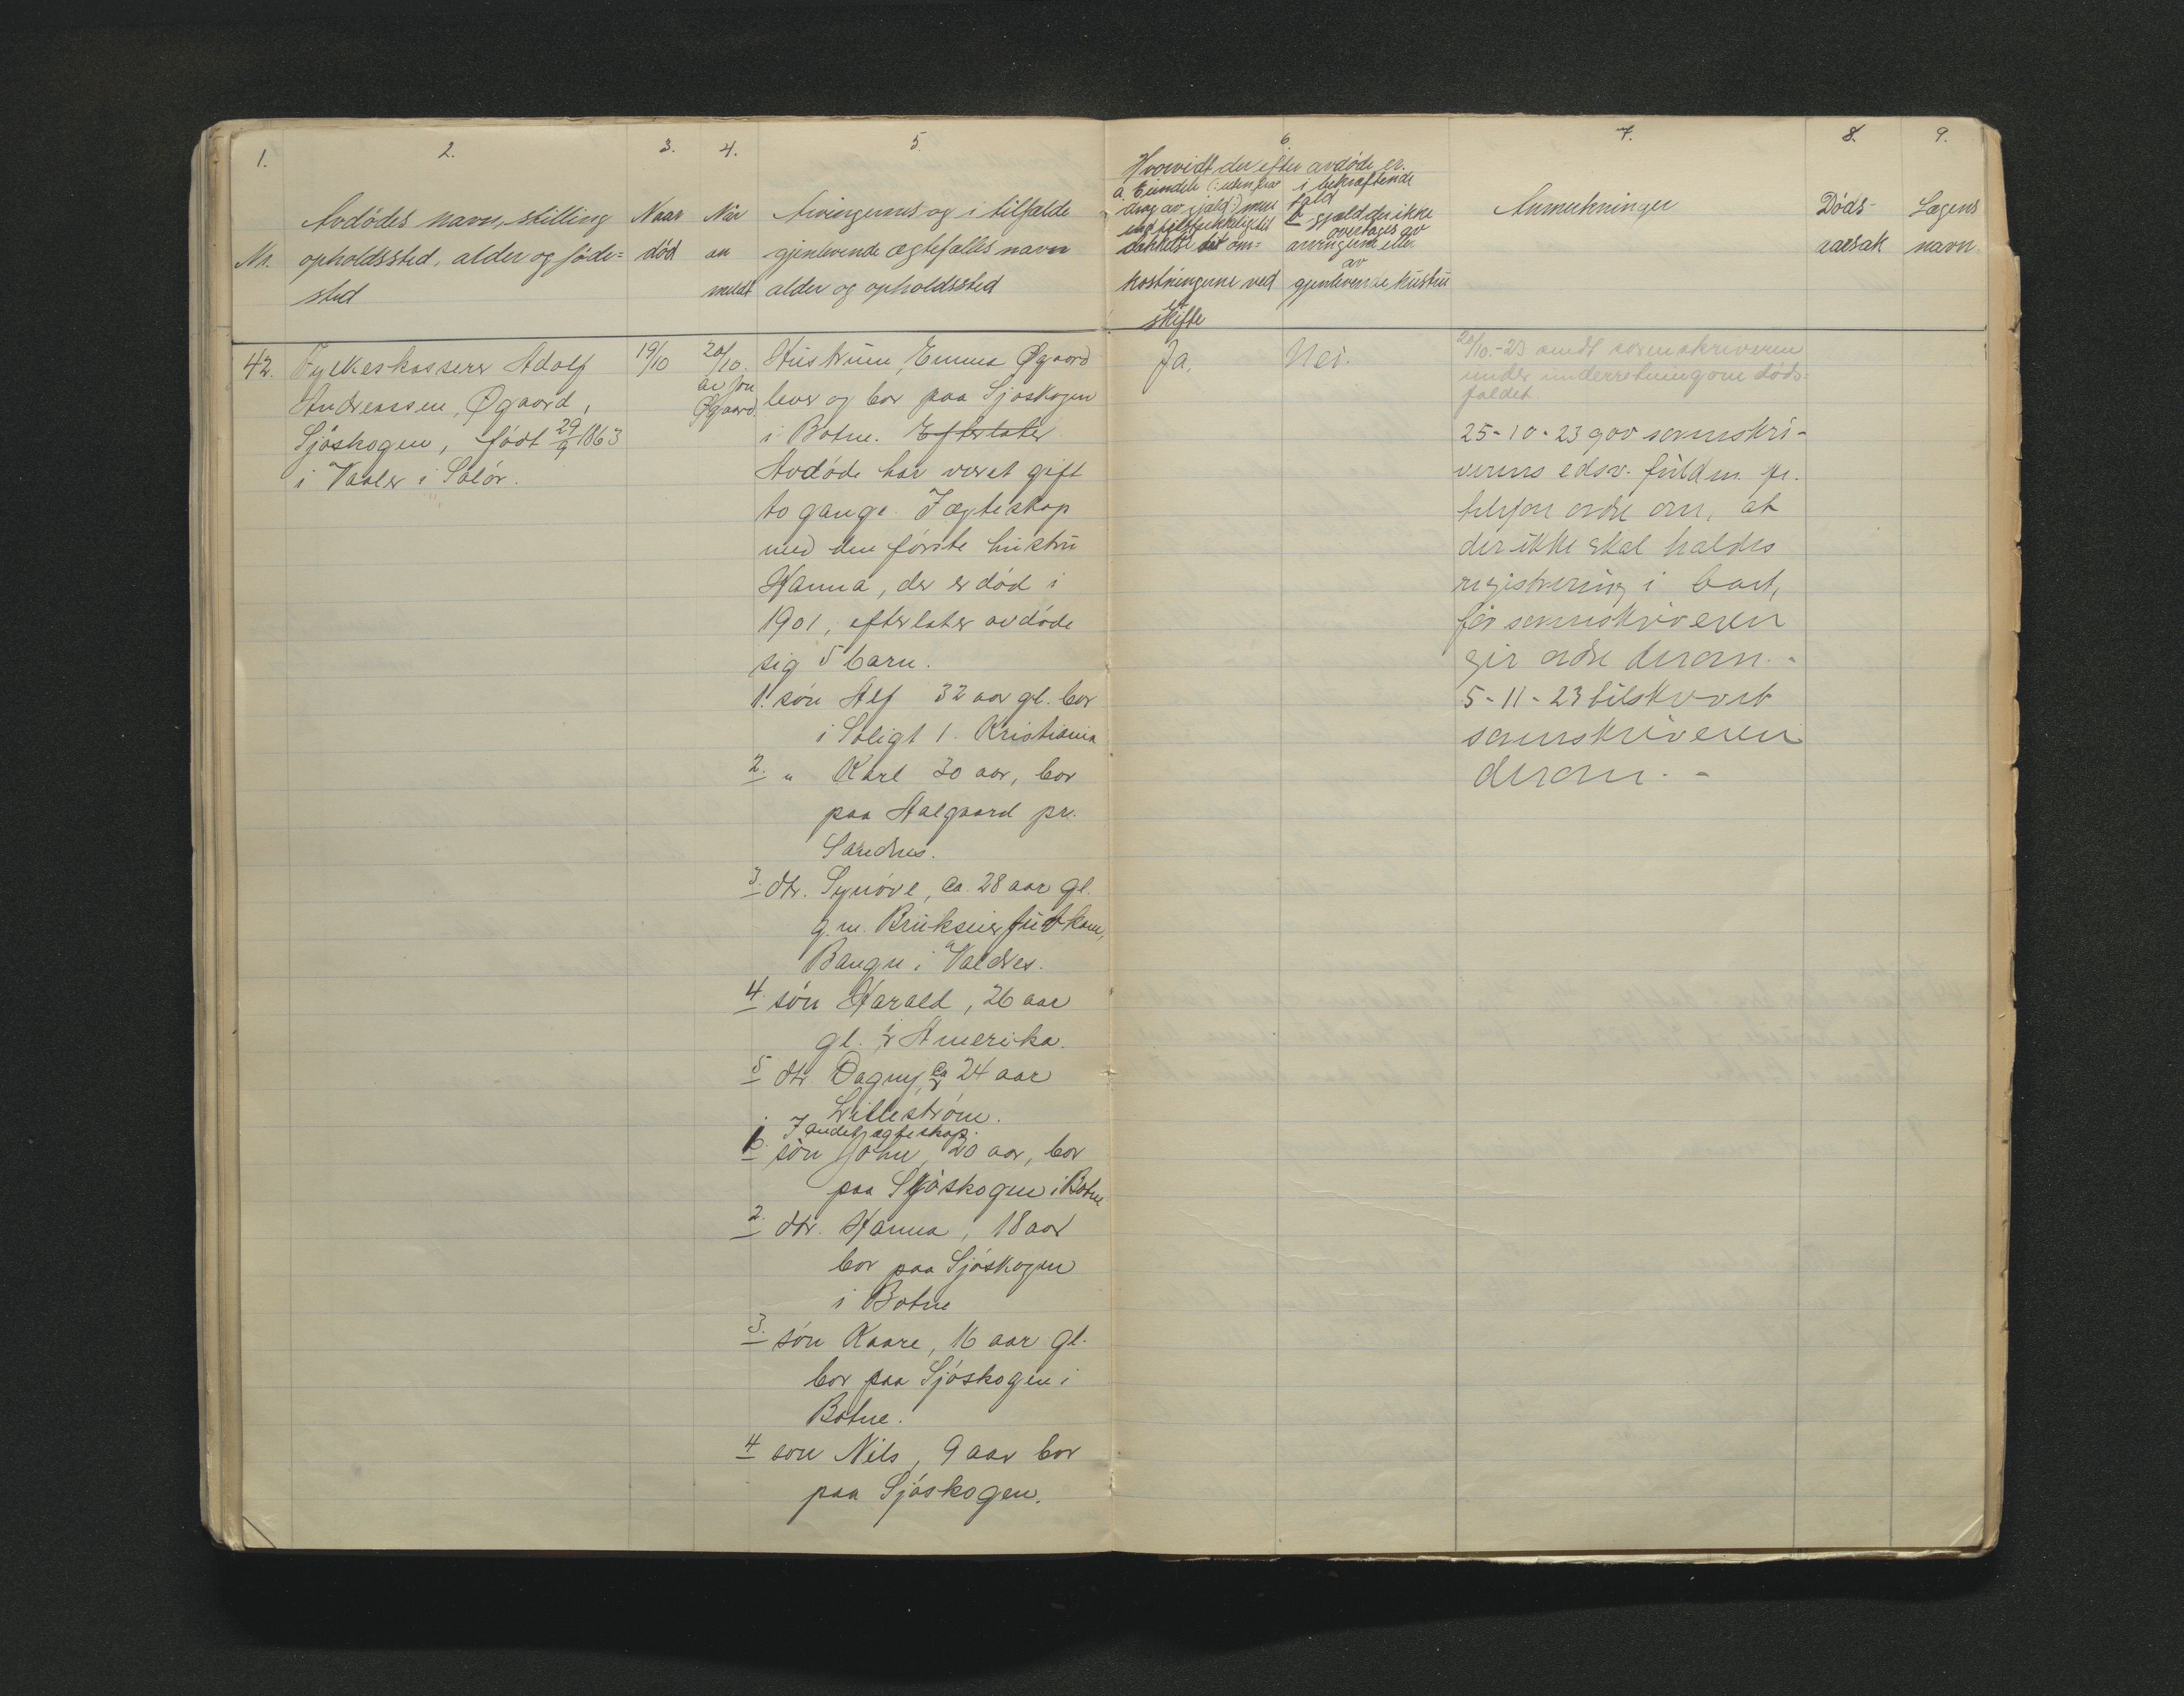 1.
2.
3.
4.
5.
6.
7.
8.
9.
Nr.
Avdødes navn, stilling
opholdssted, alder og føde=
sted
Naar
død
Når
an
meldt
Arvingernes og i tilfælde
gjenlevende ægtefælles navn
alder og opholdssted
Hvorvidt der efter avdøde er.
a. Eiendele (: uten fra
drag av gjæld:) mer
end tilstrækkelig til
dækkelse det om=
kostningerne ved
et
skifte
i bekræftende
fald
b. gjæld der ikke
overtages av
arvingerne eller
av
gjenlevende hustru
Anmerkninger
Døds-
aarsak
Lægens
navn.
42.
Fylkeskasserer Adolf
Andreassen, Øgaard,
Sjøskogen, født 29/9 1863
i Vaaler i Solør.
19/10
20/10.
av fru
Øgaard.
Hustruen, Emma Øgaard
lever og bor paa Sjøskogen
i Botne. Efterlater
Avdøde har været gift
to gange. I ægteskap
med den første hustru
Hanna, der er død i
1901, efterlater avdøde
sig 5 barn.
1. søn Alf 32 aar gl. bor
i Soligt 1. Kristiania
2. " Karl 30 aar, bor
paa Aalgaard pr.
Sandnes.
3. dtr. Synøve, ca. 28 aar gl.
g.m. Brukseier
Bangn i Valdres.
4. søn Harald, 26 aar
gl. i Amerika.
5 dtr Dagny, ca 24 aar
Lillestrøm.
I andet ægteskap.
1. søn John, 20 aar, bor
paa Sjøskogen i Botne
2. dtr. Hanna, 18 aar
bor paa Sjøskogen
i Botne
3. søn Kaare, 16 aar gl.
bor paa Sjøskogen i
Botne.
4 søn Nils, 9 aar bor
paa Sjøskogen.
Ja.
Nei.
20/10.-23 sendt sorenskriveren
under underretning om døds=
faldet.
25-10-23 gav sorenskri-
verens edsv. fuldm. pr.
telefon ordre om, at
der ikke skal holdes
registrering i boet,
før sorenskriveren
gir ordre derom.-
5-11-23 tilskrevet
sorenskriveren
derom.-